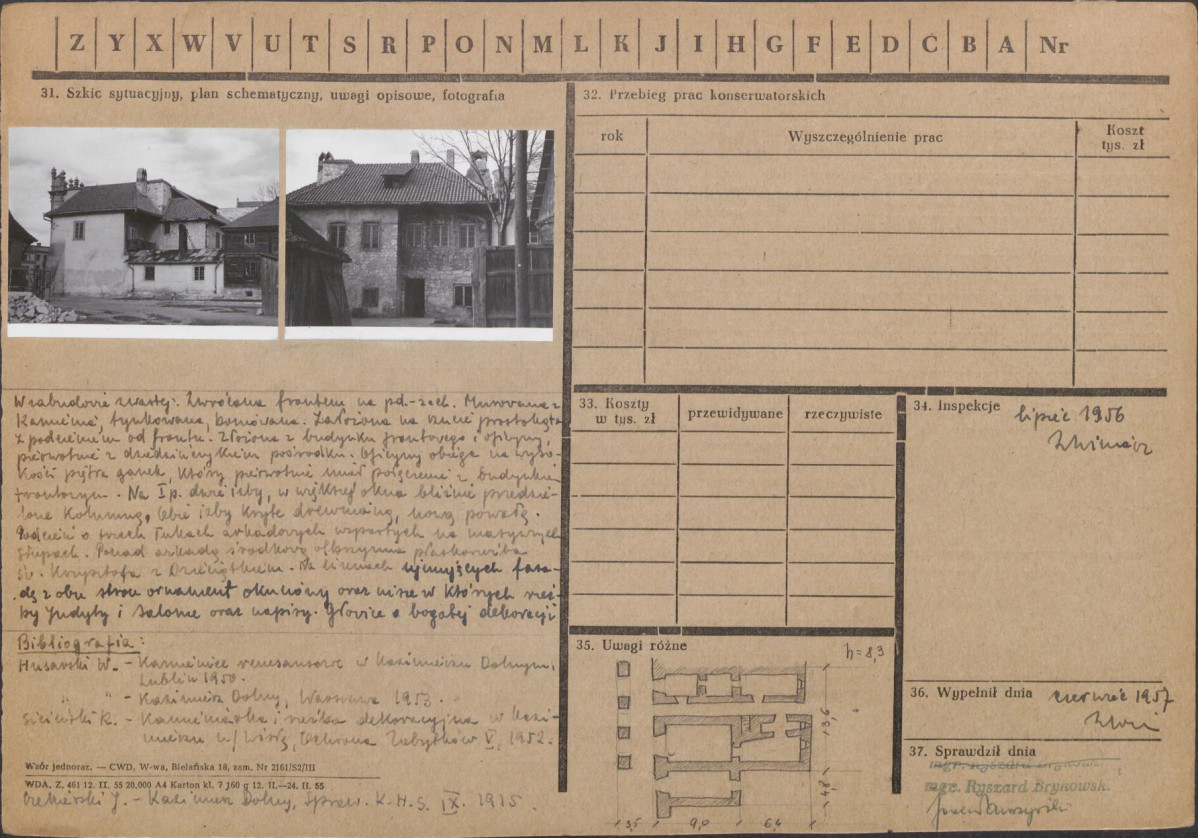 Z Y X W V U T S R P O N M L K J I H G F E D C B A Nr
31. Szkic sytuacyjny, plan schematyczny, uwagi opisowe, fotografia
W zabudowie zwartej. Zwrócona frontem na pd-zach. Murowana z
kamienia, tynkowana, boniowana. Założona na rzucie prostokąta
z podcieniem od frontu. Złożona z budynku frontowego i oficyny,
pierwotnie z dziedzińczykiem pośrodku. Oficynę obiega na wyso-
kości piętra ganek, który pierwotnie miał połączenie z budynkiem
frontowym. Na I p. dwie izby, w większej okna bliźnie przedzie-
lone kolumną, obie izby kryte drewnianą, nową powałą.
Podcień o trzech łukach arkadowych wspartych na masywnych
słupach. Ponad arkadą środkową olbrzymia płaskorzeźba
św. Krzysztofa z Dzieciątkiem. Na lizenach ujmujących fasa-
dę z obu stron ornament okuciowy oraz nisze w których rzeź-
by Judyty i Salome oraz napisy. Głowice o bogatej dekoracji
Bibliografia:
Husarski W. - Kamienice renesansowe w Kazimierzu Dolnym,
Lublin 1950.
" " - Kazimierz Dolny, Warszawa 1953.
Siciński R. - Kamieniarka i rzeźba dekoracyjna w Kazi-
mierzu n/Wisłą, Ochrona Zabytków V, 1952.
Wzór jednoraz. — CWD, W-wa, Bielańska 18, zam. Nr 2161/S2/III
WDA. Z. 461 12. II. 55 20.000 A4 Karton kl. 7 160 g 12. II.—24. II. 55
J. - Kazimierz Dolny, Spraw. K.H.S. IX. 1915.
32. Przebieg prac konserwatorskich
rok
Wyszczególnienie prac
Koszt
tys. zł
33. Koszty
w tys. zł
przewidywane
rzeczywiste
34. Inspekcje
lipiec 1956
35. Uwagi różne
h=8,3
13,6
4,8
3,5 9,0 6,4
36. Wypełnił dnia
czerwiec 1957
37. Sprawdził dnia
mgr. Ryszard Brykowski